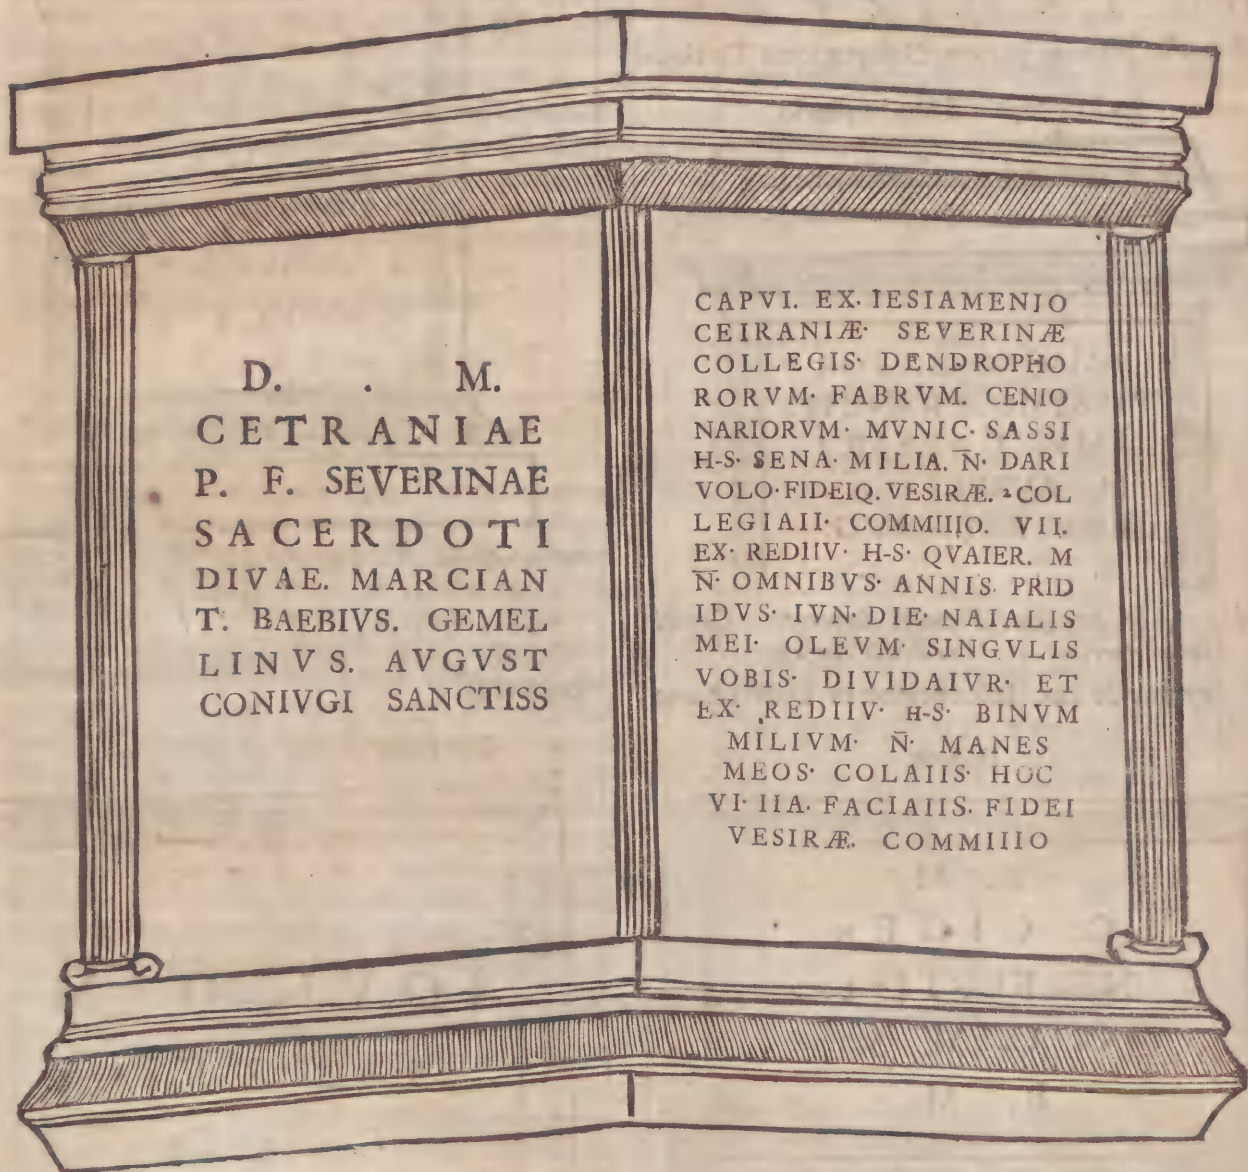 D. . M.
CETRANIAE
P. F. SEVERINAE
SACERDOTI
DIVAE. MARCIAN
T. BAEBIVS. GEMEL
LINVS. AVGVST
CONIVGI SANCTISS
CAPVI. EX· IESIAMENIO
CEIRANIÆ· SEVERINÆ
COLLEGIS· DENDROPHO
RORVM· FABRVM. CENIO
NARIORVM· MVNIC· SASSI
H-S· SENA· MILIA. N̄· DARI
VOLO·FIDEIQ. VESIRÆ. COL
LEGIAII· COMMIIIO. VII.
EX· REDIIV· H-S· QVAIER. M
N̄· OMNIBVS· ANNIS. PRID
IDVS· IVN· DIE· NAIALIS
MEI· OLEVM· SINGVLIS
VOBIS· DIVIDAIVR· ET
EX· REDIIV· H-S· BINVM
MILIVM· N̄· MANES
MEOS· COLAIIS· HOC
VI· IIA. FACIAIIS. FIDEI
VESIRÆ. COMMIIIO